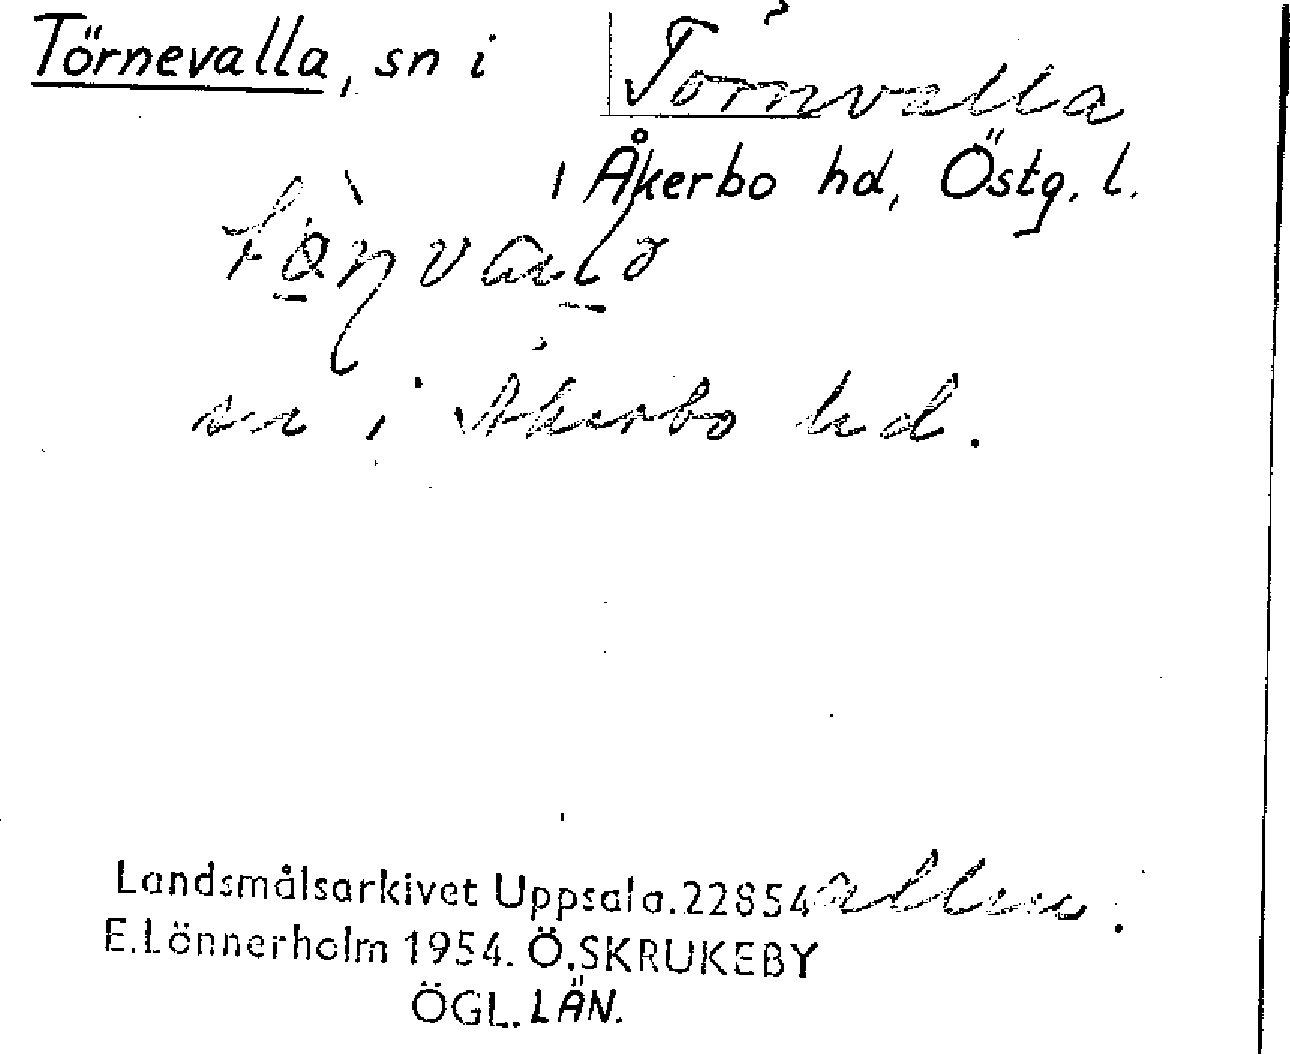 Törnevalla, sn i Törnvalla
i Åkerbo hd, Östg. l.
sn i Åkerbo hd.
Landsmålsarkivet Uppsala. 22854 allm.
E. Lönnerholm 1954. Ö. SKRUKEBY
ÖGL. LÄN.